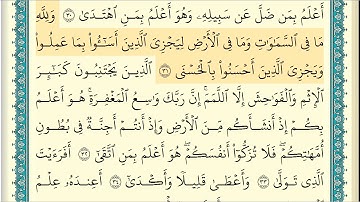 أَعْلَمُ بِمَن ضَلَّ عَن سَبِيلِهِۦ وَهُوَ أَعْلَمُ بِمَنِ ٱهْتَدَىٰ ٣٠ وَلِلَّهِ
مَا فِى ٱلسَّمَٰوَٰتِ وَمَا فِى ٱلْأَرْضِ لِيَجْزِىَ ٱلَّذِينَ أَسَٰٓـُٔوا۟ بِمَا عَمِلُوا۟
وَيَجْزِىَ ٱلَّذِينَ أَحْسَنُوا۟ بِٱلْحُسْنَى ٣١ ٱلَّذِينَ يَجْتَنِبُونَ كَبَٰٓئِرَ
ٱلْإِثْمِ وَٱلْفَوَٰحِشَ إِلَّا ٱللَّمَمَ ۚ إِنَّ رَبَّكَ وَٰسِعُ ٱلْمَغْفِرَةِ ۚ هُوَ أَعْلَمُ
بِكُمْ إِذْ أَنشَأَكُم مِّنَ ٱلْأَرْضِ وَإِذْ أَنتُمْ أَجِنَّةٌ فِى بُطُونِ
أُمَّهَٰتِكُمْ ۖ فَلَا تُزَكُّوٓا۟ أَنفُسَكُمْ ۖ هُوَ أَعْلَمُ بِمَنِ ٱتَّقَىٰٓ ٣٢ أَفَرَءَيْتَ
ٱلَّذِى تَوَلَّىٰ ٣٣ وَأَعْطَىٰ قَلِيلًا وَأَكْدَىٰٓ ٣٤ أَعِندَهُۥ عِلْمُ